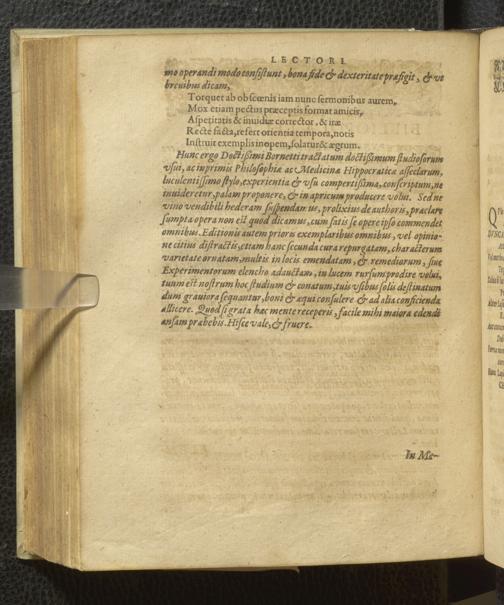 LECTORI
mo operandi modo consistunt, bona fide & dexteritate præfigit, & vt
breuibus dicam,
Torquet ab obscœnis iam nunc sermonibus aurem,
Mox etiam pectus præceptis format amicis,
Asperitatis & inuidiæ corrector, & iræ
Recte facta, refert orientia tempora, notis
Instruit exemplis inopem, solatur & ægrum.
Hunc ergo Doctissimi Bornetti tractatum doctissimum studiosorum
vsui, ac inprimis Philosophiæ ac Medicinæ Hippocraticæ asseclarum,
luculentissimo stylo, experientia & vsu compertissima, conscriptum, ne
inuideretur, palam proponere, & in apricum producere volui. Sed ne
vino vendibili hederam suspendamus, prolixius de authoris, præclare
sumpta opera non est quod dicamus, cum satis se opere ipso commendet
omnibus. Editionis autem prioris exemplaribus omnibus, vel opinio-
ne citius distractis, etiam hanc secunda cura repurgatam, characterum
varietate ornatam, multis in locis emendatam, & remediorum, siue
Experimentorum elencho adauctam, in lucem rursum prodire volui,
tuum est nostrum hoc studium & conatum, tuis vsibus solis destinatum
dum grauiora sequantur, boni & æqui consulere & ad alia conficienda
allicere. Quod si grata hæc mente receperis, facile mihi maiora edendi
ansam præbebis. Hisce vale, & fruere.
In Me-